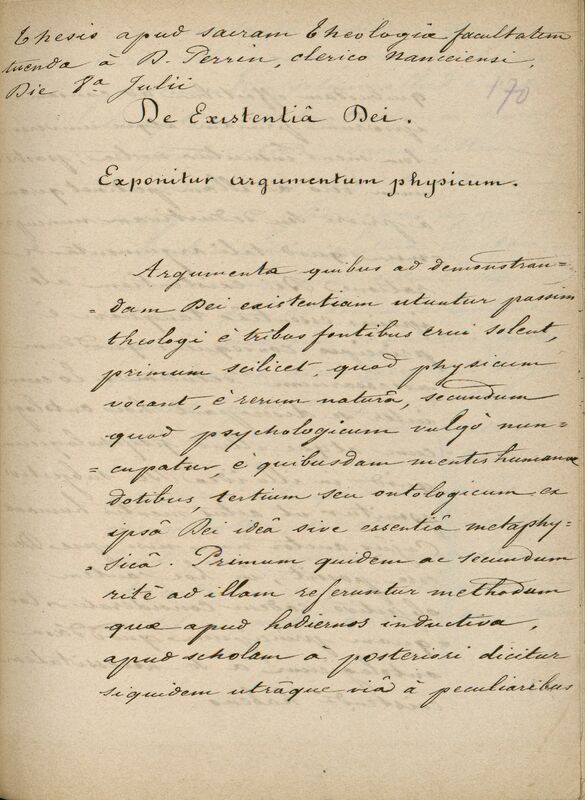 Thesis apud sacram Theologiæ facultatem
tuenda à D. Perrin, clerico Nanceiensi,
Die 8ᵃ Julii
170
De Existentiâ Dei.
Exponitur argumentum physicum.
Argumenta quibus ad demonstran=
=dam Dei existentiam utuntur passim
theologi è tribus fontibus erui solent,
primum scilicet, quod physicum
vocant, è rerum naturâ, secundum
quod psychologicum vulgò nun=
=cupatur, è quibusdam mentis humanæ
dotibus, tertium seu ontologicum ex
ipsâ Dei ideâ sive essentiâ metaphy=
=sicâ. Primum quidem ac secundum
ritè ad illam referuntur methodum
quæ apud hodiernos inductiva,
apud scholam à posteriori dicitur
siquidem utrâque viâ à peculiaribus